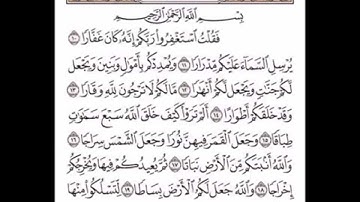 بِسْمِ ٱللَّهِ ٱلرَّحْمَٰنِ ٱلرَّحِيمِ
فَقُلْتُ ٱسْتَغْفِرُوا۟ رَبَّكُمْ إِنَّهُۥ كَانَ غَفَّارًا ١٠
يُرْسِلِ ٱلسَّمَآءَ عَلَيْكُم مِّدْرَارًا ١١ وَيُمْدِدْكُم بِأَمْوَٰلٍ وَبَنِينَ وَيَجْعَل
لَّكُمْ جَنَّٰتٍ وَيَجْعَل لَّكُمْ أَنْهَٰرًا ١٢ مَّا لَكُمْ لَا تَرْجُونَ لِلَّهِ وَقَارًا ١٣
وَقَدْ خَلَقَكُمْ أَطْوَارًا ١٤ أَلَمْ تَرَوْا۟ كَيْفَ خَلَقَ ٱللَّهُ سَبْعَ سَمَٰوَٰتٍ
طِبَاقًا ١٥ وَجَعَلَ ٱلْقَمَرَ فِيهِنَّ نُورًا وَجَعَلَ ٱلشَّمْسَ سِرَاجًا ١٦
وَٱللَّهُ أَنۢبَتَكُم مِّنَ ٱلْأَرْضِ نَبَاتًا ١٧ ثُمَّ يُعِيدُكُمْ فِيهَا وَيُخْرِجُكُمْ
إِخْرَاجًا ١٨ وَٱللَّهُ جَعَلَ لَكُمُ ٱلْأَرْضَ بِسَاطًا ١٩ لِّتَسْلُكُوا۟ مِنْهَا